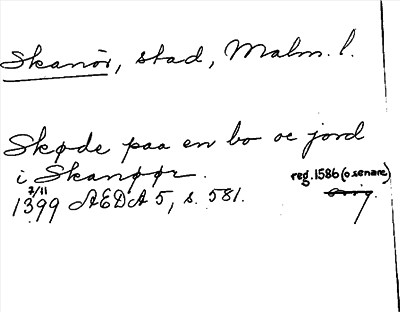 Skanör, stad, Malm. l.
Skøde paa en bo oc jord
i Skanøør.
reg. 1586 (o senare)
orig.
7/11
1399 ÆDA 5, s. 581.